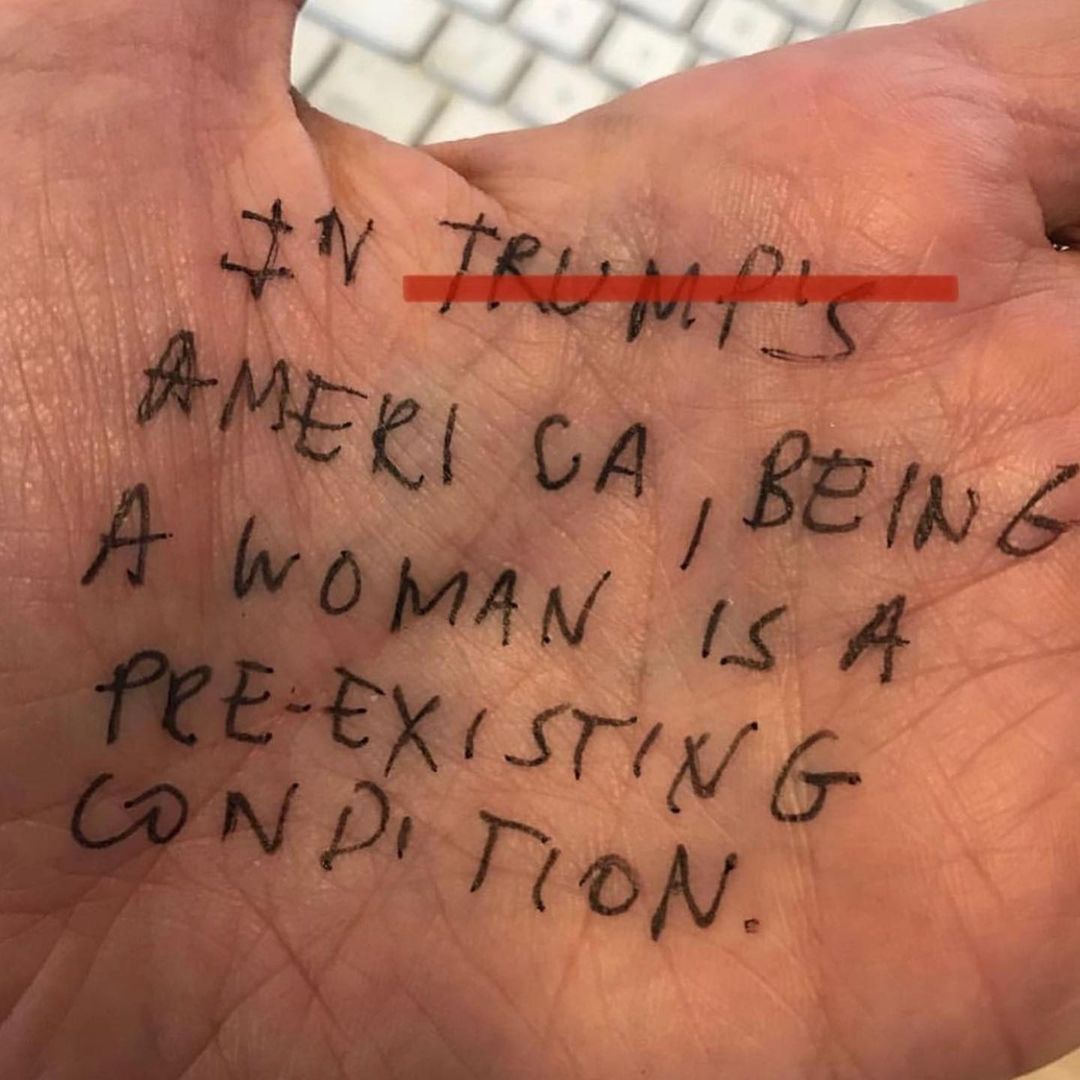 IN TRUMP'S
AMERICA, BEING
A WOMAN IS A
PRE-EXISTING
CONDITION.